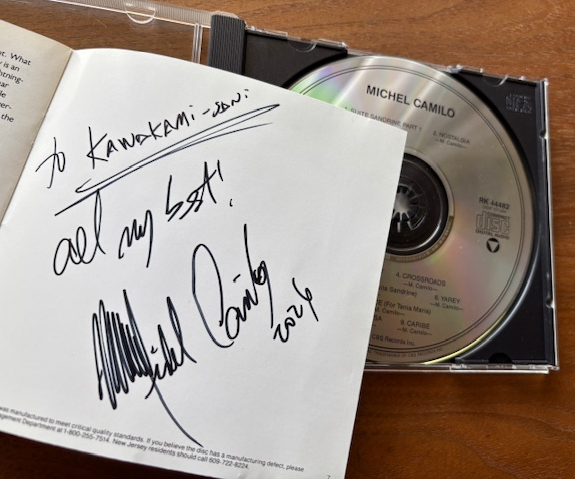 t. What
is an
htning-
ear
le
ver-
the
to KAWAKAMI-SAN:
all my best!
Michel Camilo
2024
was manufactured to meet critical quality standards. If you believe the disc has a manufacturing defect, please
gement Department at 1-800-255-7514. New Jersey residents should call 609-722-8224.
7
MICHEL CAMILO
1. SUITE SANDRINE PART 1
2. NOSTALGIA
—M. Camilo—
—M. Camilo—
RK 44482
COMPACT
disc
DIGITAL AUDIO
4. CROSSROADS
—M. Camilo—
Sandrine)
6. YAREY
—M. Camilo—
E (For Tania Maria)
SA
9. CARIBE
—M. Camilo—
CBS Records Inc.